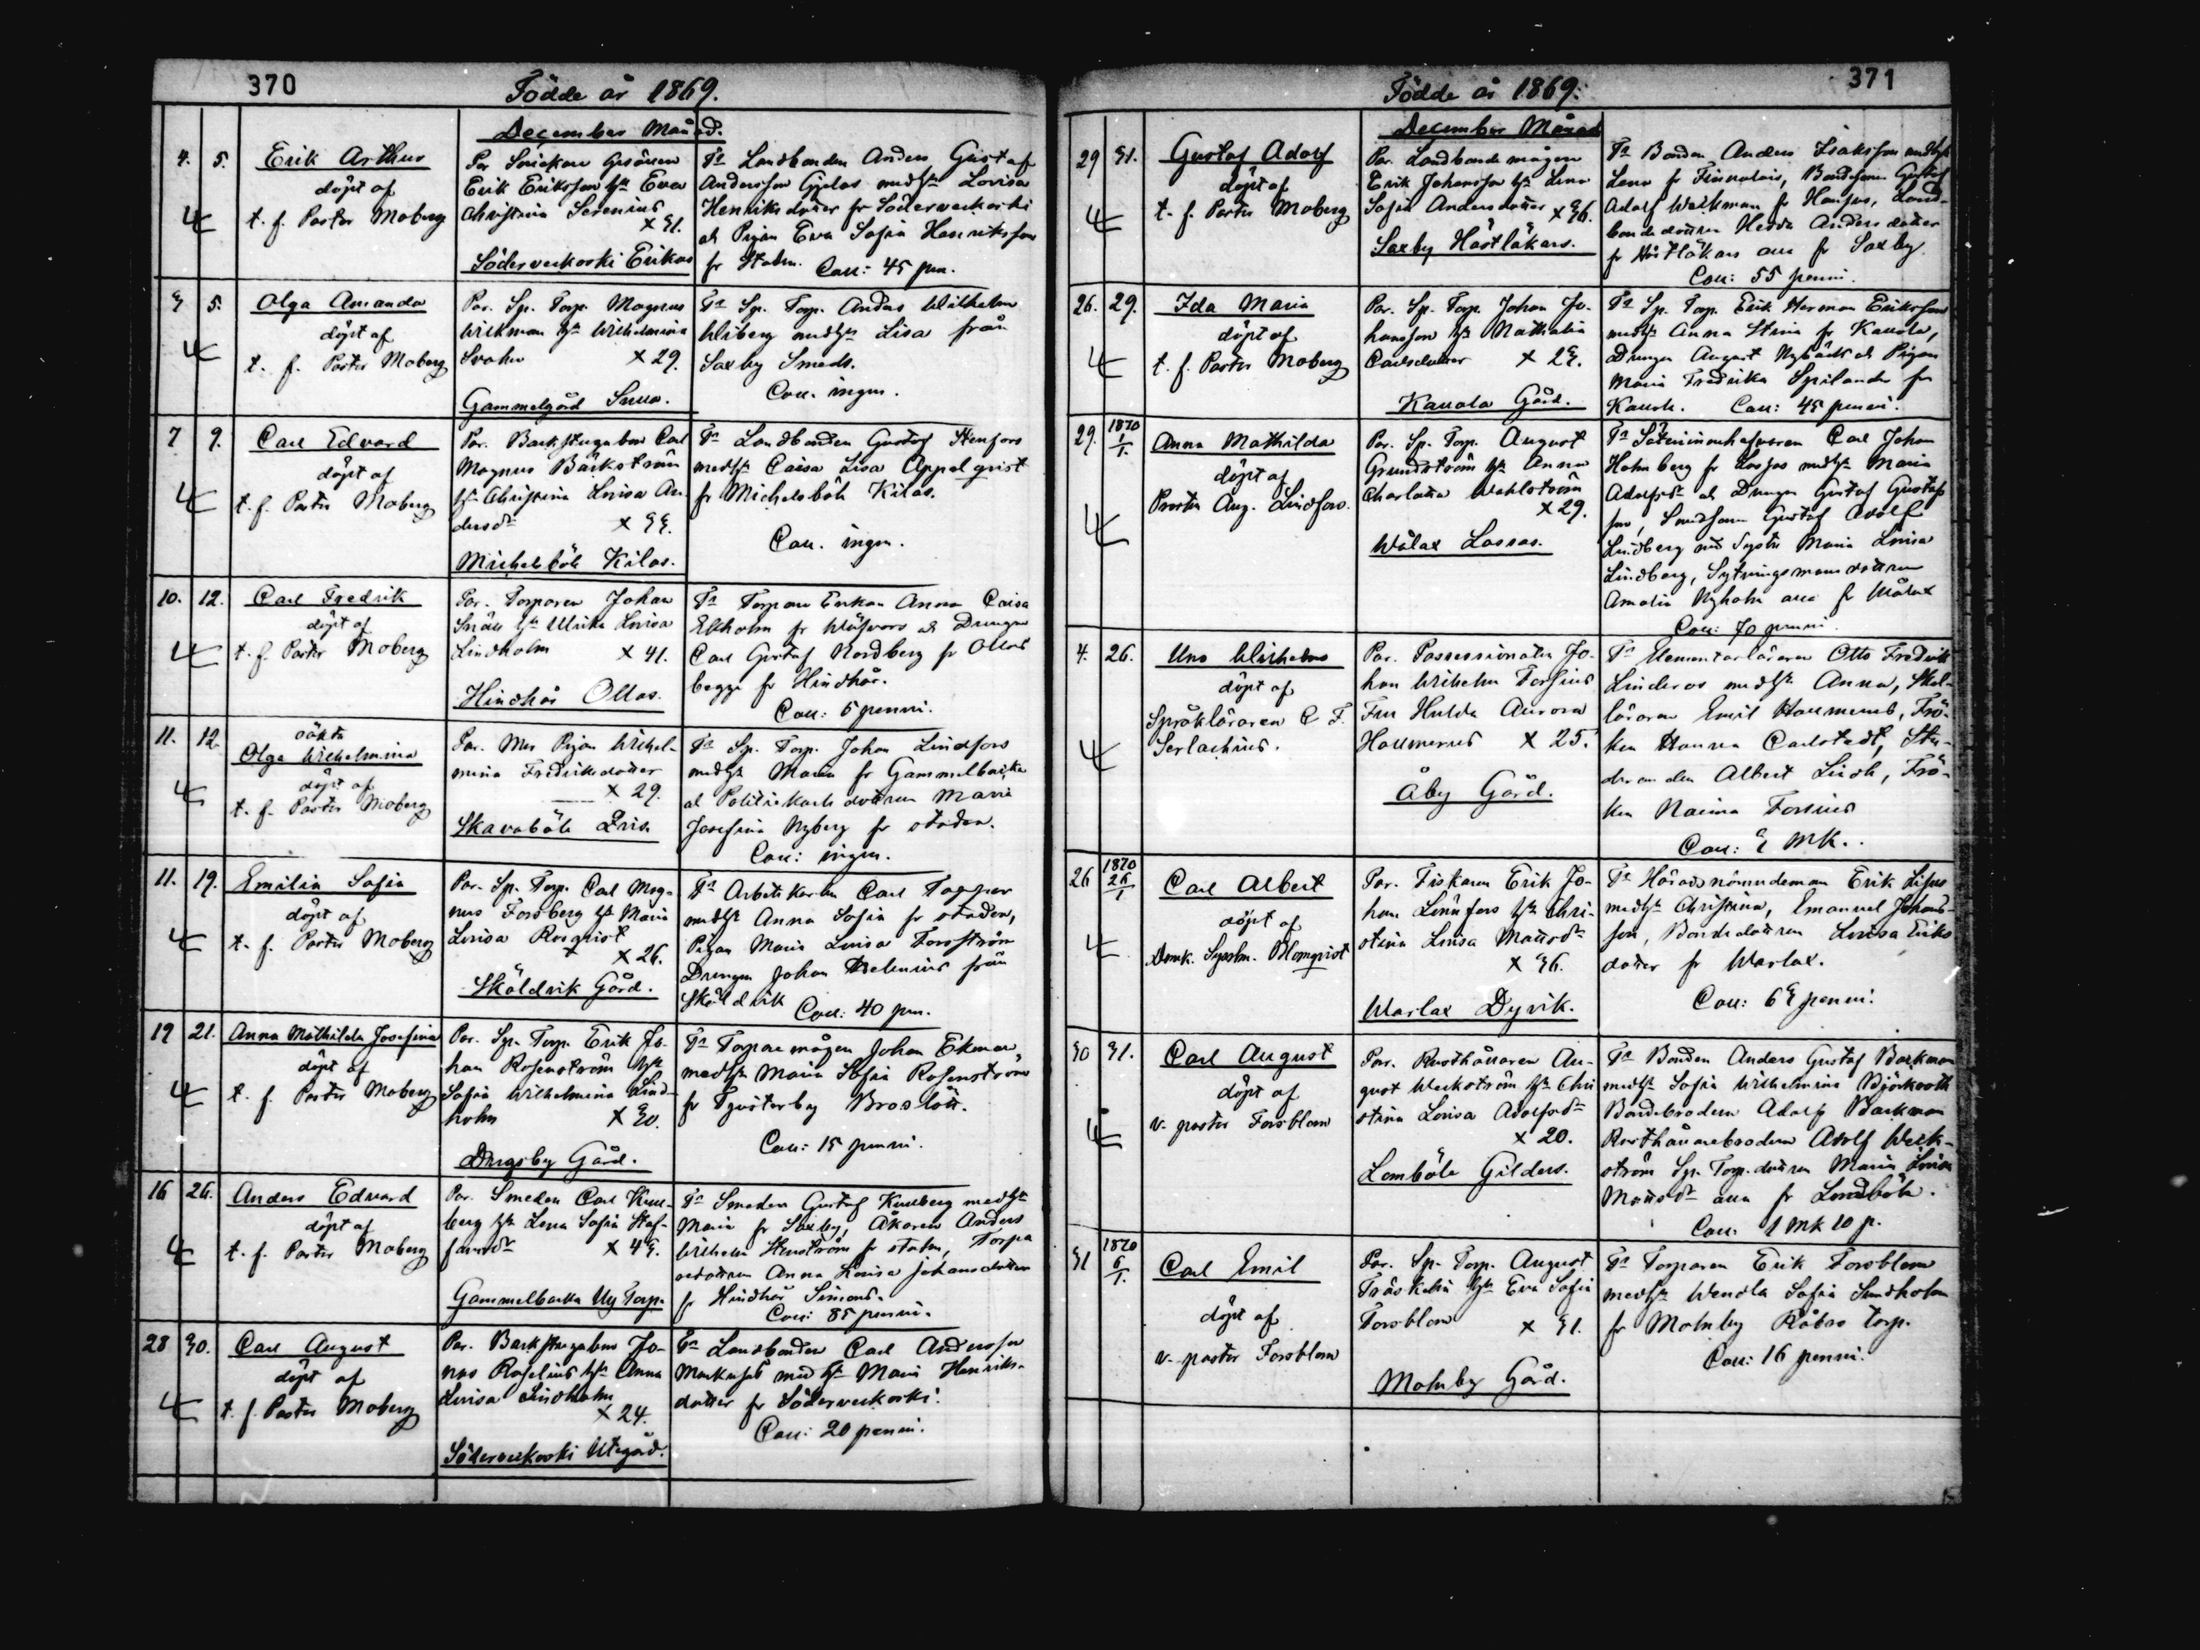 370
Födde år 1869.
December Månad.
4. 5. Erik Arthur
döpt af
t. f. Pastor Moberg
Par. Snickare Gesällen
Erik Eriksson h:u Eva
Christina Serenius
x 31.
Söderveckoski Erikas
Fr Landbonden Anders Gustaf
Andersson med h:u Lovisa
Henriksdotter fr Söderveckoski
och Pigan Eva Sofia Henriksson
fr Staden. Coll: 45 pen.
3 5. Olga Amanda
döpt af
t. f. Pastor Moberg
Par. Sp. Torp. Magnus
Wickman h:u Wilhelmina
Svahn x 29.
Gammelgård
Fr Sp. Torp. Anders Wilhelm
Wiberg med h:u Lisa från
Saxby Smeds.
Coll. ingen.
7 9. Carl Edvard
döpt af
t. f. Pastor Moberg
Par. Backstugubon Carl
Magnus Bäckström
h:u Christina Lovisa An-
dersdr x 33.
Michelsböle Kilas.
Fr Landbonden Gustaf Stenfors
med h:u Caisa Lisa Appelqvist
fr Michelsböle Kilas.
Coll. ingen.
10. 12. Carl Fredrik
döpt af
t. f. Pastor Moberg
Par. Torparen Johan
Snäll h:u Ulrika Lovisa
Lindholm x 41.
Hindhår Ollas.
Fr Torpare Enkan Anna Caisa
Ekholm fr och Drengen
Carl Gustaf Nordberg fr Ollas
begge fr Hindhår.
Coll: 5 penni.
11. 12. oäkta
Olga Wilhelmina
döpt af
t. f. Pastor Moberg
Par. Mor Pigan Wilhel-
mina Fredriksdotter
x 29.
Skaraböle
Fr Sp. Torp. Johan Lindfors
med h:u Maria fr Gammelbacka
och Politiekarls dottren Maria
Josefina Nyberg fr staden.
Coll: ingen.
11. 19. Emilia Sofia
döpt af
t. f. Pastor Moberg
Par. Sp. Torp. Carl Mag-
nus Forsberg h:u Maria
Lovisa Rosqvist
x 26.
Sköldvik Gård.
Fr Arbetskarlen Carl Tapper
med h:u Anna Sofia fr staden,
Pigan Maria Lovisa Forsström
Drengen Johan Helenius från
Sköldvik Coll: 40 pen.
19 21. Anna Mathilda Josefina
döpt af
t. f. Pastor Moberg
Par. Sp. Torp. Erik Jo-
han Rosenström h:u
Sofia Wilhelmina Lind-
holm x 30.
Drägsby Gård.
Fr Torpare mågen Johan Ekman
med h:u Maria Sofia Rosenström
fr Tjusterby Broslätt.
Coll: 15 penni.
16 26. Anders Edvard
döpt af
t. f. Pastor Moberg
Par. Smeden Carl Kull-
berg h:u Lena Sofia Staf-
fansdr x 43.
Gammelbacka Ny Torp.
Fr Smeden Gustaf Kullberg med h:u
Maria fr Saxby, Åkaren Anders
Wilhelm Stenström fr staden, Torpa-
redottren Anna Lovisa Johansdotter
fr Hindhår Simons.
Coll: 85 penni.
28 30. Carl August
döpt af
t. f. Pastor Moberg
Par. Backstugubon Jo-
nas Roselius h:u Anna
Lovisa Lindholm
x 24.
Söderveckoski Utegård.
Fr Landbonden Carl Andersson
med h:u Maria Henriks-
dotter fr Söderveckoski.
Coll: 20 penni.
371
Födde år 1869.
December Månad
29 31. Gustaf Adolf
döpt af
t. f. Pastor Moberg
Par. Landbonde mågen
Erik Johansson h:u Lena
Sofia Andersdotter x 36.
Saxby Hästläkars.
Fr Bonden Anders Isaksson med h:u
Lena fr Finnalais, Bondesonen Gustaf
Adolf Weckman fr Hansas, Land-
bondedottren Hedda Andersdotter
fr Hästläkars alla fr Saxby.
Coll: 55 penni.
26. 29. Ida Maria
döpt af
t. f. Pastor Moberg
Par. Sp. Torp. Johan Jo-
hansson h:u Nathalia
Carlsdotter x 23.
Kallola Gård.
Fr Sp. Torp. Erik Herman Eriksson
med h:u Anna Stina fr Kallola,
Drengen August Nybäck och Pigan
Maria Fredrika Spilander fr
Kallola. Coll: 45 penni.
29. 1870 1/1. Anna Mathilda
döpt af
Prosten Aug. Lindfors.
Par. Sp. Torp. August
Grundström h:u Anna
Charlotta Wahlström
x 29.
Wålax Lassas.
Fr Carl Johan
Holmberg fr Lassas med h:u Maria
Adolfsdr och Drengen Gustaf Gustafs-
son, Smedsonen Gustaf Adolf
Lindberg med Syster Maria Lovisa
Lindberg, Sytningsmansdottren
Amalia Nyholm alla fr Wålax
Coll: 70 penni.
4. 26. Uno Wilhelm
döpt af
Språkläraren C. F.
Serlachius.
Par. Possessionaten Jo-
han Wilhelm Forsius
Fru Hulda Aurora
Hallmerus x 25.
Åby Gård.
Fr Elementarläraren Otto Fredrik
Linderos med h:u Anna, Skol-
läraren Emil Hallmerus, Frö-
ken Hanna Carlstedt, Stu-
deranden Albert Lindh, Frö-
ken Naima Forsius
Coll: 3 MK.
26 1870 26/1 Carl Albert
döpt af
Domk. Sysslm. Blomqvist
Par. Fiskaren Erik Jo-
han Lindfors h:u Chri-
stina Lovisa Mattsdr
x 36.
Warlax Dyvik.
Fr Häradsnämndeman Erik
med h:u Christina, Emanuel Johans-
son, Bondedottren Lovisa Eriks-
dotter fr Warlax.
Coll: 63 penni.
30 31. Carl August
döpt af
v. pastor Forsblom
Par. Rusthållaren Au-
gust Weckström h:u Chri-
stina Lovisa Adolfsdr
x 20.
Lomböle Gilders.
Fr Bonden Anders Gustaf Backman
med h:u Sofia Wilhelmina Björkroth
Bondebrodern Adolf Backman
Rusthållarebrodern Adolf Weck-
ström Sp. Torp. dottren Maria Lovisa
Mattsdr alla fr Lomböle.
Coll. 1 MK 10 p.
31 1870 6/1. Carl Emil
döpt af
v. pastor Forsblom
Par. Sp. Torp. August
Träskelin h:u Eva Sofia
Forsblom x 31.
Molnby Gård.
Fr Torparen Erik Forsblom
med h:u Wendla Sofia Sundholm
fr Molnby Råbro torp.
Coll: 16 penni.